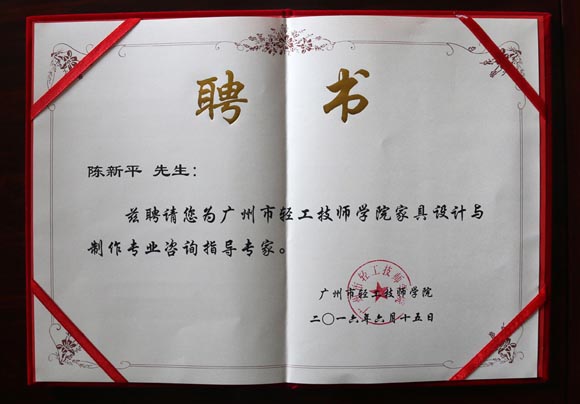 聘书
陈新平 先生：
兹聘请您为广州市轻工技师学院家具设计与
制作专业咨询指导专家。
广州市轻工技师学院
二〇一六年六月十五日
广州市轻工技师学院